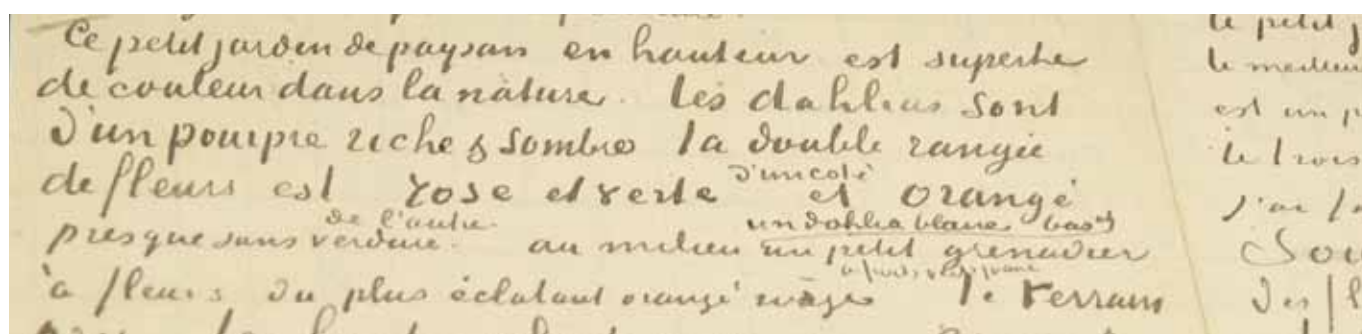 Ce petit jardin de paysan en hauteur est superbe
de couleur dans la nature. les dahlias sont
d'un pourpre riche & sombre la double rangée
de fleurs est rose et verte d'un coté et orangé
presque sans verdure de l'autre. au milieu un dahlia blanc bas et un petit grenadier
à fleurs du plus éclatant orangé rouge à fruits vert jaune le terrain
le petit
le meilleur
est un
le trois
j'ai